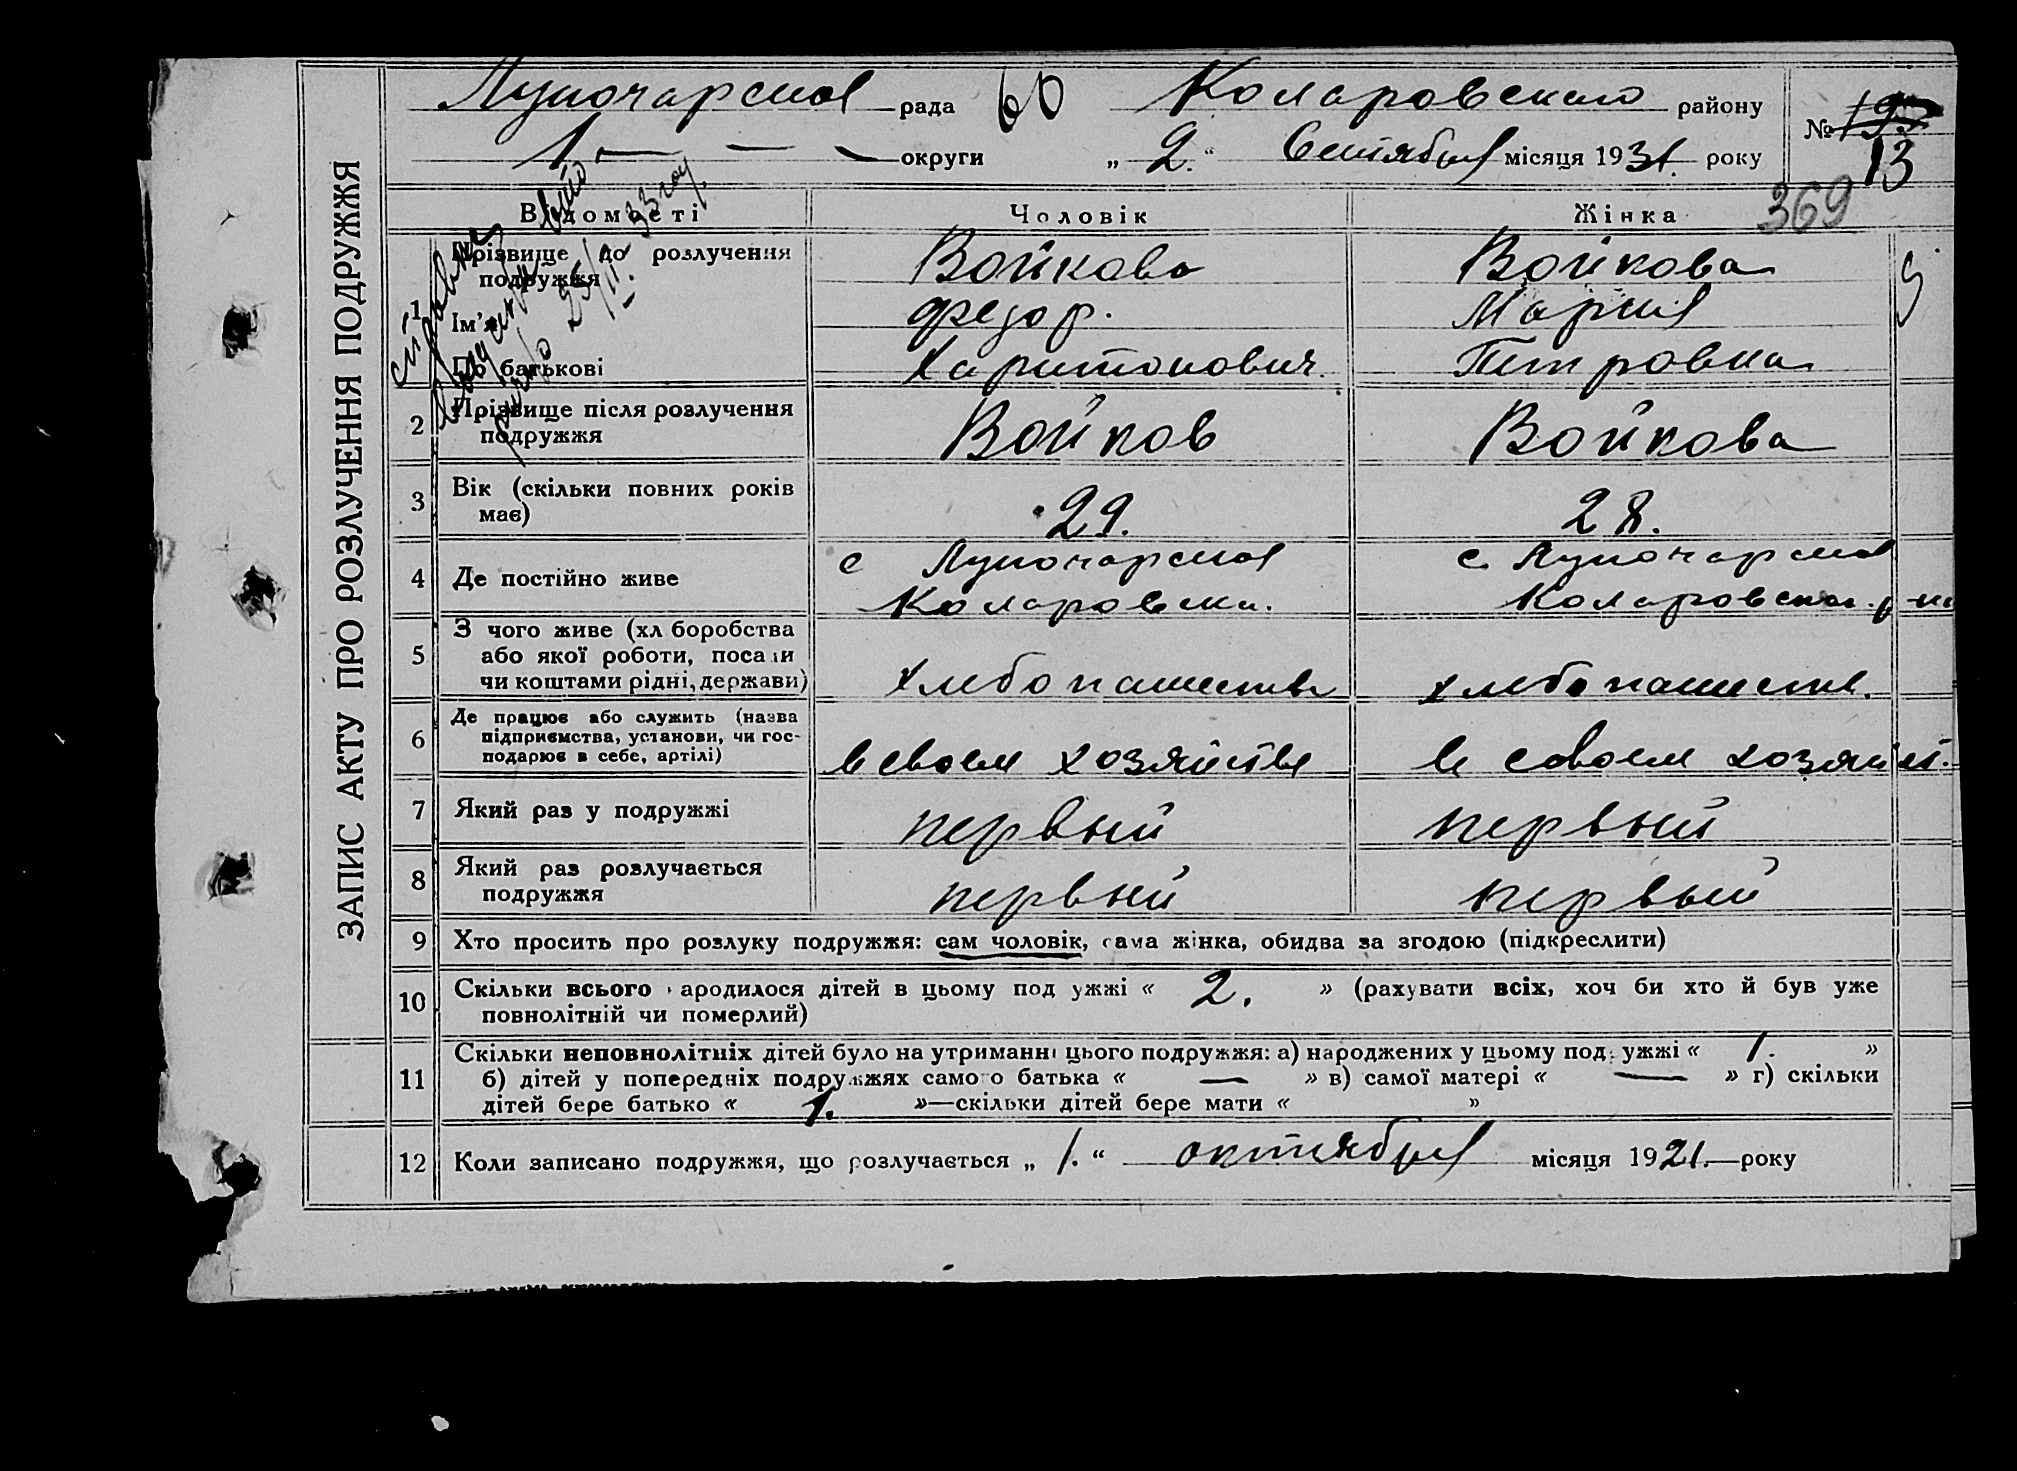 ЗАПИС АКТУ ПРО РОЗЛУЧЕННЯ ПОДРУЖЖЯ
Луночарская рада 60 Коларовского району
1 — — — округи „ 2. “ Сентября місяця 1931. року
№ 13
369
Відомості Чоловік Жінка
1 Прізвище до розлучення подружжя Войкова Войкова
Ім'я Федор. Мария
По батькові Харитонович. Петровна
2 Прізвище після розлучення подружжя Войков Войкова
3 Вік (скільки повних років має) 29. 28.
4 Де постійно живе с Луночарская с. Луночарская
Коларовски. Коларовског. р-на
5 З чого живе (хліборобства або якої роботи, посади чи коштами рідні, держави) хлебопашеств хлебопашеств.
6 Де працює або служить (назва підприємства, установи, чи господарює в себе, артілі) в своем хозяйстве в своем хозяйст.
7 Який раз у подружжі первый первый
8 Який раз розлучається подружжя первый первый
9 Хто просить про розлуку подружжя: сам чоловік, сама жінка, обидва за згодою (підкреслити)
10 Скільки всього народилося дітей в цьому подружжі « 2. » (рахувати всіх, хоч би хто й був уже
повнолітній чи померлий)
11 Скільки неповнолітніх дітей було на утриманні цього подружжя: а) народжених у цьому подружжі « 1. »
б) дітей у попередніх подружжях самого батька « — » в) самої матері « — » г) скільки
дітей бере батько « 1. »—скільки дітей бере мати « »
12 Коли записано подружжя, що розлучається „ 1. “ октября місяця 1921.—року